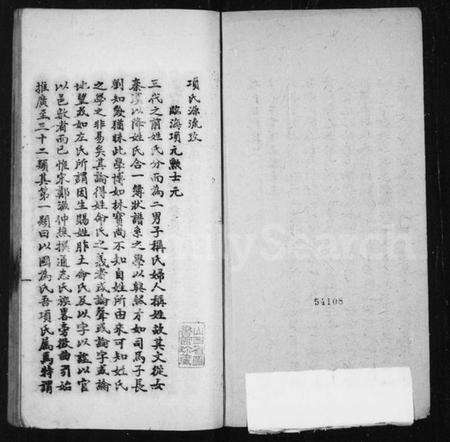 項氏源流攷
臨海項元勲士元
三代之前姓氏分而為二男子稱氏婦人稱姓故其文從女
秦漢以降姓氏合一簿狀譜系之學以興然才如司馬子長
劉知幾猶昧此學博如林寶尚不知自姓所由來可知姓氏
之學史非易矣其論得姓命氏之義者或論聲或論字或論
地望或如左氏所謂因生賜姓胙土命氏及以字以諡以官
以邑數者而已惟宋鄭漁仲樵撰通志氏族畧旁徵曲引始
推廣至三十二類其第一類曰以國為氏吾項氏屬焉特謂
54108
FamilySearch